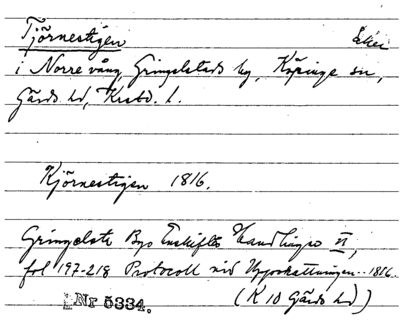 Tjörnestigen
i Norre vång, Gringelstads by, Köpinge sn,
Gärds hd, Krstd. l.
Kjörnestigen 1816.
Gringelsta Bys Enskiftes Handlingar VI,
fol 197-218 Protocoll vid Uppskattningen.. 1816.
(K 10 Gärds hd)
Nr 5334.